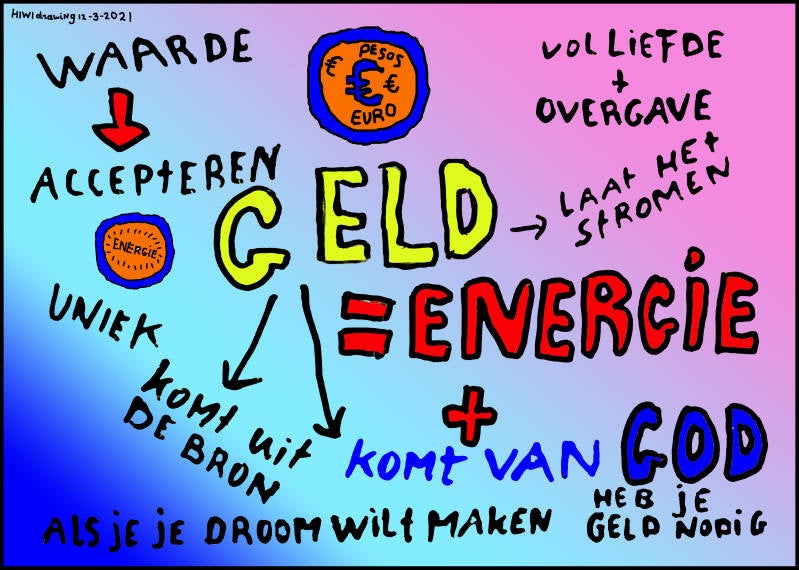 HIWI drawing 12-3-2021
WAARDE
PESOS
€ € €
EURO
VOL LIEFDE
+
OVERGAVE
ACCEPTEREN
GELD
LAAT HET
STROMEN
ENERGIE
UNIEK
= ENERGIE
+
KOMT UIT
DE BRON
KOMT VAN GOD
ALS JE JE DROOM WILT MAKEN
HEB JE
GELD NODIG